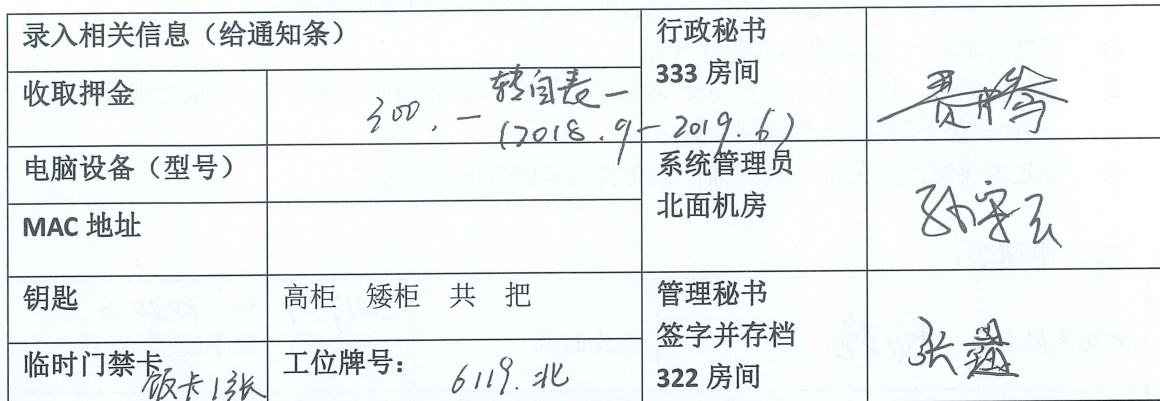 录入相关信息（给通知条）
行政秘书
333 房间
收取押金
300.一 转自表一
(2018.9-2019.6)
电脑设备（型号）
系统管理员
北面机房
MAC 地址
孙宇
钥匙
高柜 矮柜 共 把
管理秘书
签字并存档
322 房间
张
临时门禁卡
饭卡1张
工位牌号：
6119.北